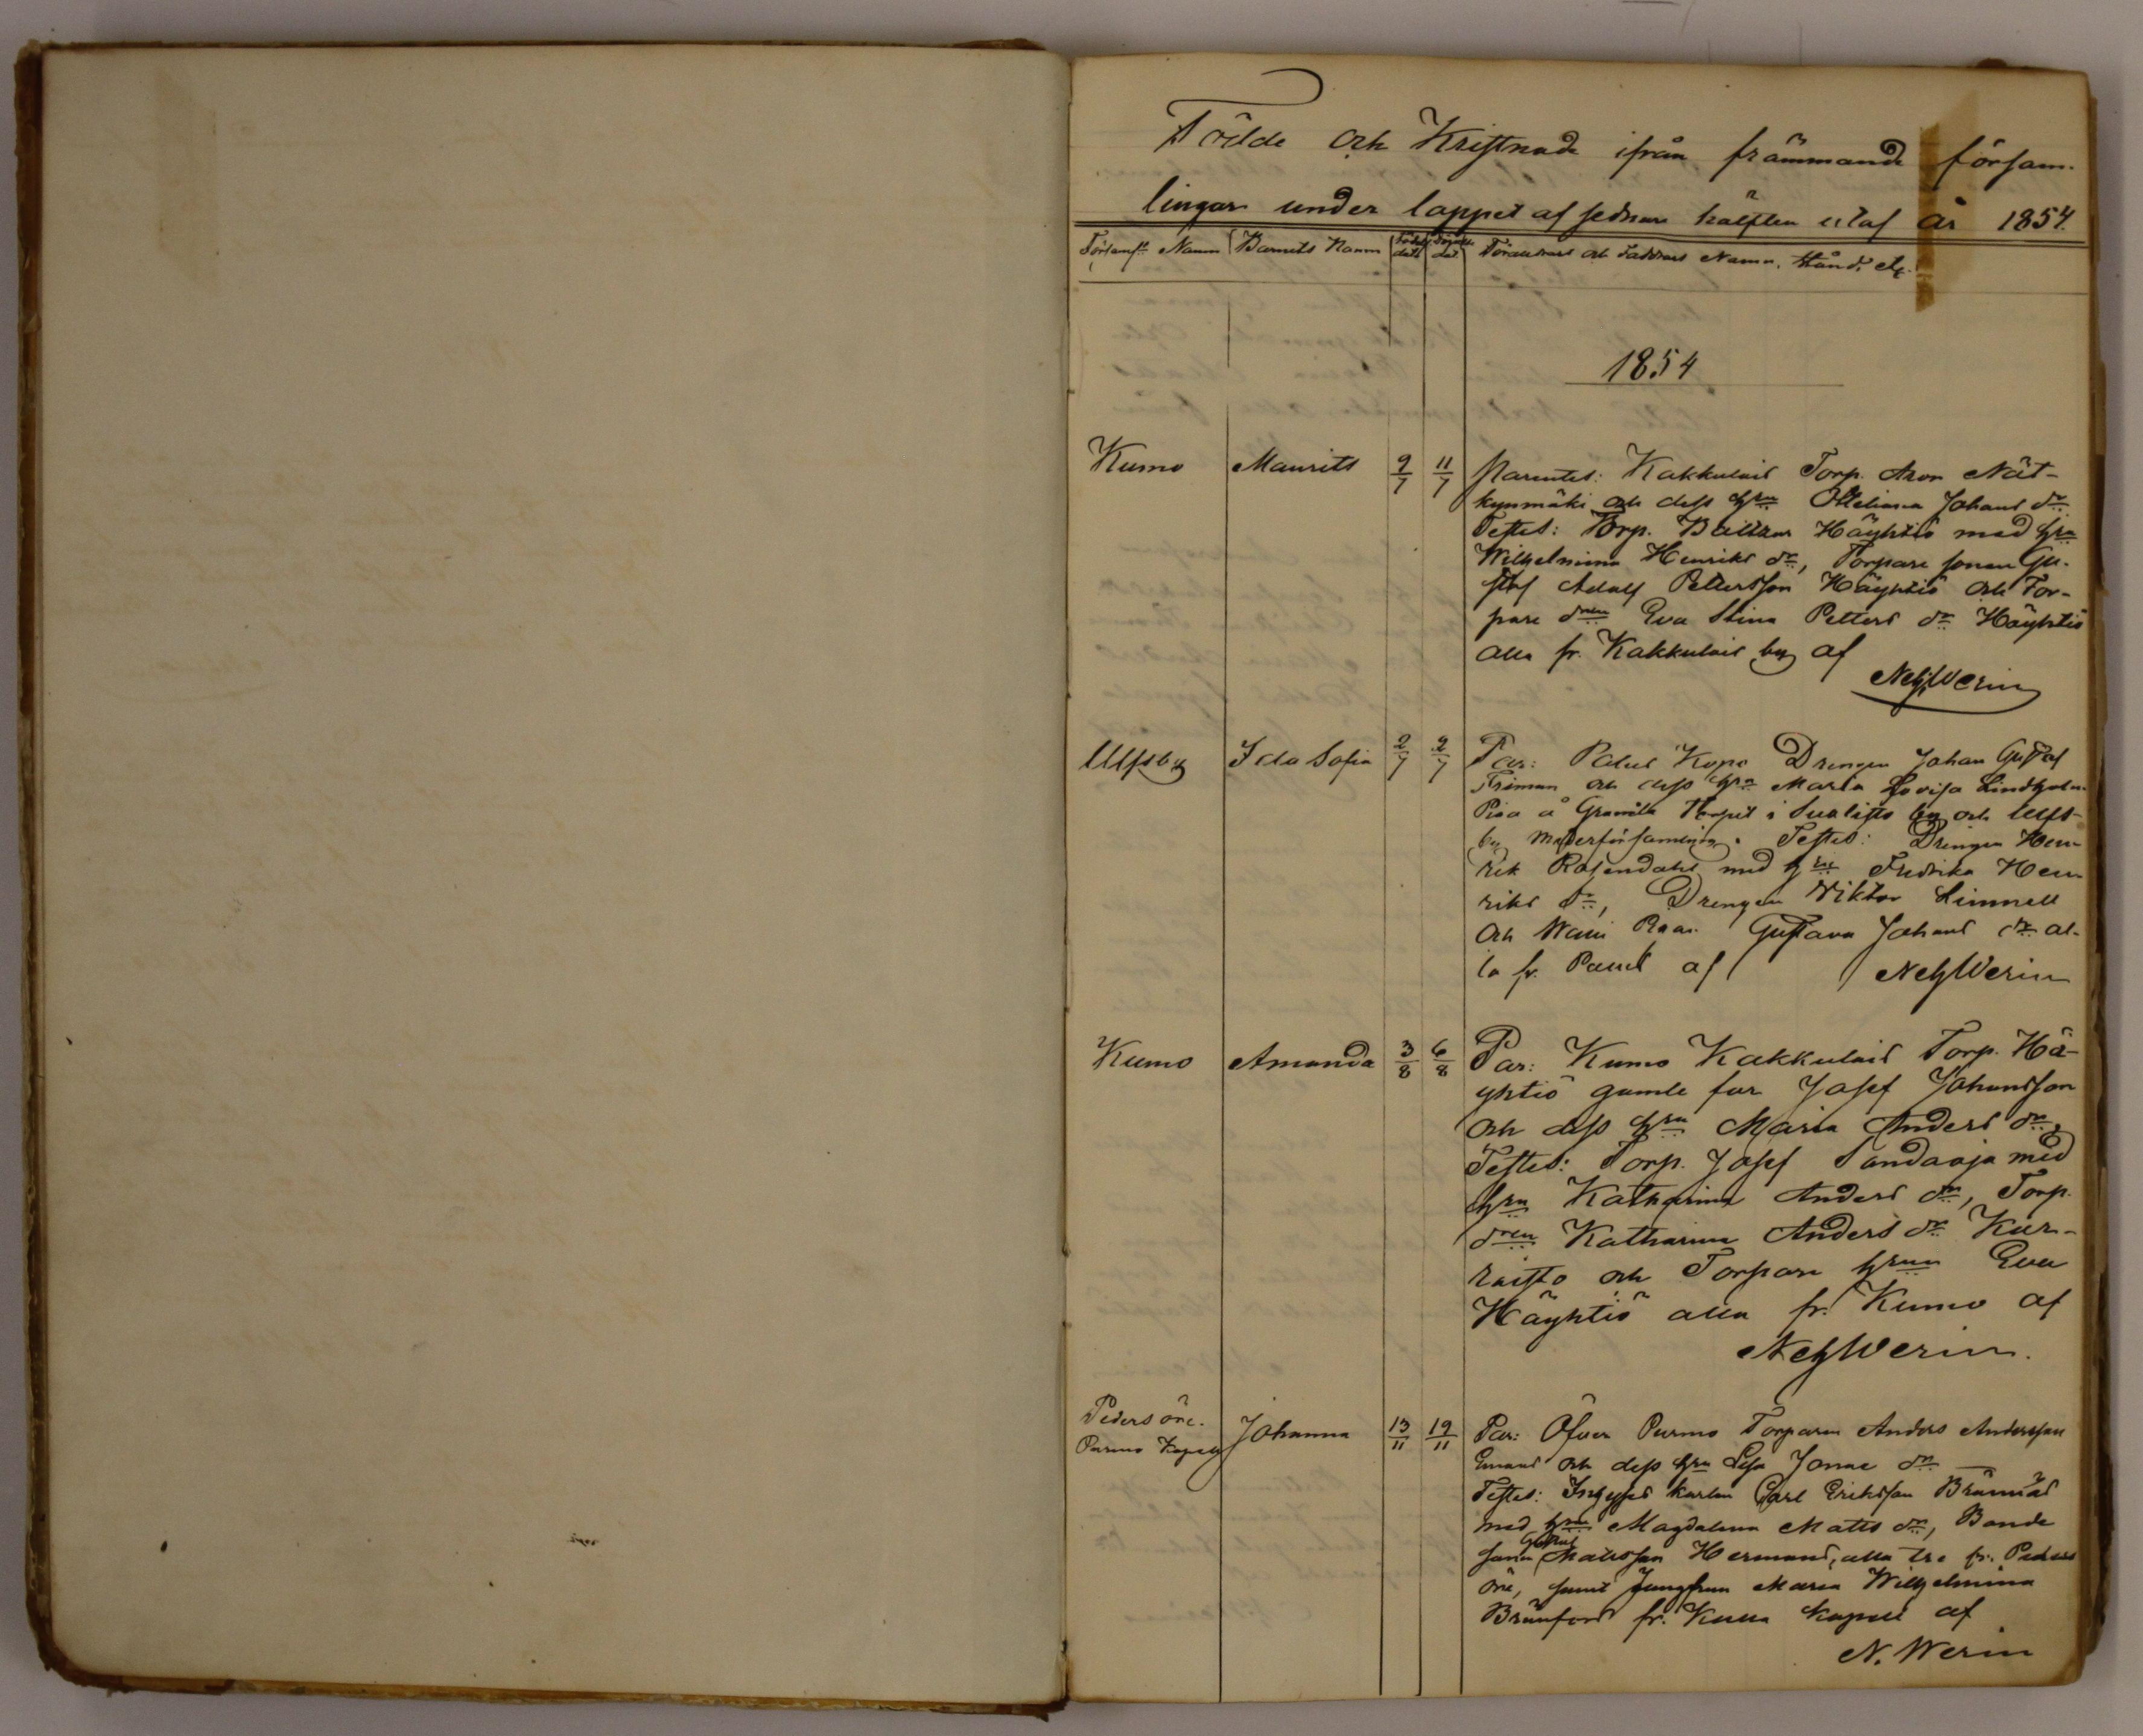 Födde och Kristnade ifrån främmande försam-
lingar under loppet af sednare hälften utaf år 1854.
Församls Namn Barnets Namn Födelse dat. Döpelse dat. Föräldrars och Faddrars Namn, Stånd, etc.
1854
Kumo Maurits 9/7 11/7 Parentes: Kakkulais Torp. Aron Nät-
kynmäki och dess hru Johans dr
Testes: Torp. Baltzar Häyhtiö med hru
Wilhelmina Henriks dr, Torpare sonen Gu-
staf Adolf Pettersson Häyhtiö och Tor-
pare dren Eva Stina Petters dr Häyhtiö
alla fr. Kakkulais by af
NehWerin
Ulfsby Ida Sofia 2/7 9/7 Par: Palus Kopo Drengen Johan Gustaf
Friman och dess hru Maria Lovisa Lindholm
Piga å i Suosisto by och Ulfs-
by Moderförsamling. Testes: Drengen Hen-
rik Rosendahl med hru Fredrika Hen-
riks dr, Drengen Viktor Limnell
och Gustava Johans dr al-
la fr. af NehWerin
Kumo Amanda 3/8 6/8 Par: Kumo Kakkulais Torp. Hä-
yhtiö gamle far Josef Johansson
och dess hru Maria Anders dr,
Testes: Torp. Josef Sandaoja med
hru Katharina Anders dr, Torp.
dren Katharina Anders dr Kur-
raisto och Torpare hrun Eva
Häyhtiö alla fr. Kumo af
NehWerin.
Pedersöre. Johanna 13/11 19/11 Par: Öfver Purmo Torparen Anders Andersson
Purmo Kapell och dess hru Lisa Jonae dr
Testes: Inhyses karlen Carl Eriksson Brännäs
med hru Magdalena Matts dr, Bonde
sonen Gustaf Matsson Hermans, alla tre fr. Peders
öre, samt Jungfrun Maria Wilhelmina
fr. Kulla kapell af
N. Werin